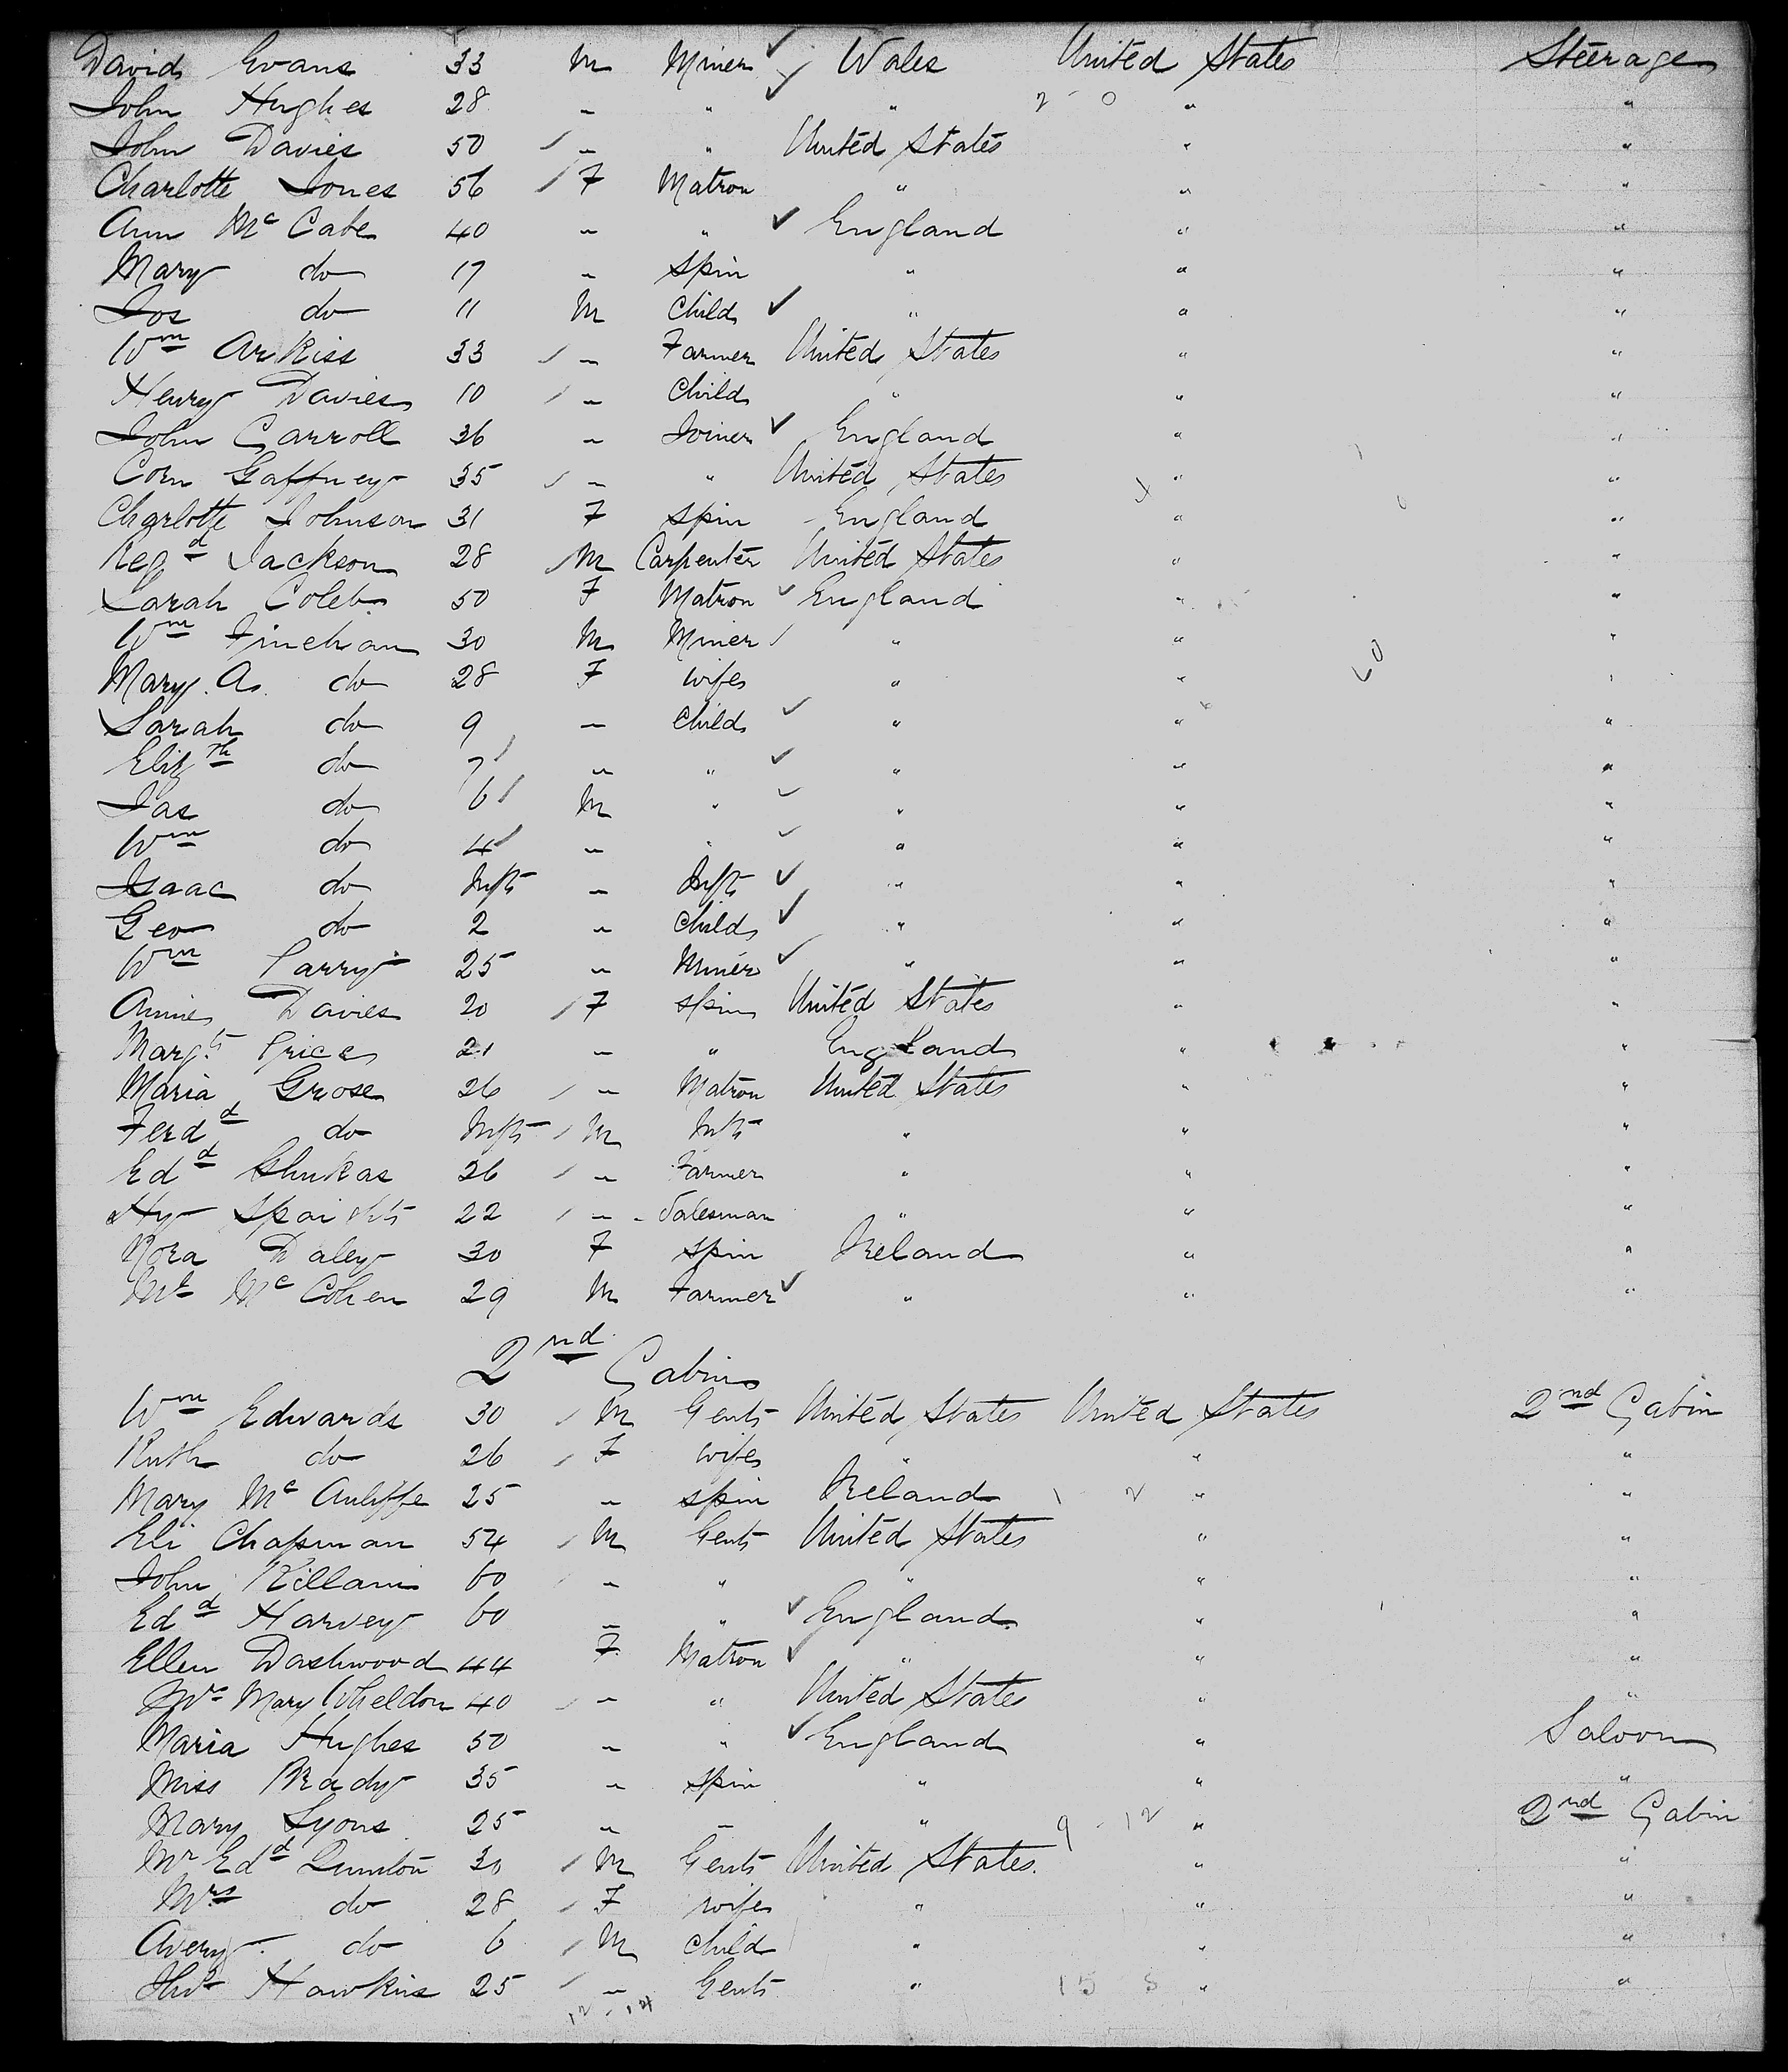 David Evans 33 M Miner Wales United States Steerage
John Hughes 28 " " " 2 - 0 " "
John Davies 50 " " United States " "
Charlotte Jones 56 F Matron " " "
Ann Mc Cabe 40 " " England " "
Mary do 17 " Spin " " "
Jos do 11 M Child " " "
Wm Arkiss 33 " Farmer United States " "
Henry Davies 10 " Child " " "
John Carroll 36 " Joiner England " "
Corn Gaffney 35 " " United States " "
Charlotte Johnson 31 F Spin England " "
Regd Jackson 28 M Carpenter United States " "
Sarah Coleb 50 F Matron England " "
Wm Finchan 30 M Miner " " "
Mary. A. do 28 F wife " " "
Sarah do 9 " Child " " "
Elizth do 7 " " " " "
Jas do 6 M " " " "
Wm do 4 " " " " "
Isaac do Inft " Inft " " "
Geo do 2 " Child " " "
Wm Parry 25 " Miner " " "
Annie Davies 20 F Spin United States " "
Margt Price 21 " " England " "
Maria Grose 26 " Matron United States " "
Ferdd do Inft M Inft " " "
Edd Shukas 26 " Farmer " " "
Hy Spaights 22 " Salesman " " "
Nora Daley 30 F Spin Ireland " "
Mc Cohen 29 M Farmer " " "
2nd Cabin
Wm Edwards 30 M Gent United States United States 2nd Cabin
Ruth do 26 F wife " " "
Mary Mc Auliffe 25 " Spin Ireland " "
Eli Chapman 54 M Gent United States " "
John Killam 60 " " " " "
Edd Harvey 60 " " England " "
Ellen Dashwood 44 F Matron " " "
Mrs Mary Wheldon 40 " " United States " "
Maria Hughes 50 " " England " Saloon
Miss Brady 35 " Spin " " "
Mary Lyons 25 " " " 9 - 12 " 2nd Cabin
Mr Edd Dunton 30 M Gent United States. " "
Mrs do 28 F wife " " "
Avery do 6 M Child " " "
Hawkins 25 " Gent " 15 8 " "
12 - 14